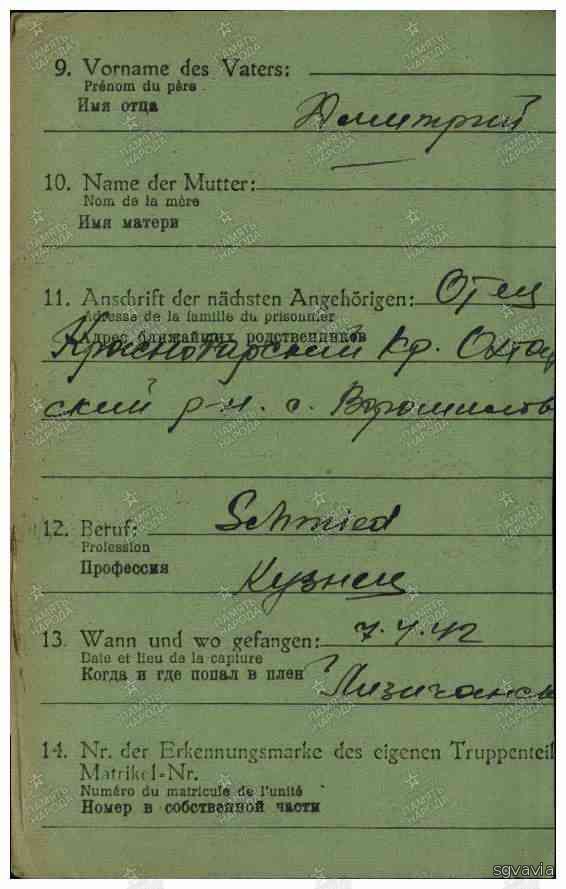 9. Vorname des Vaters:
Prénom du père
Имя отца
Дмитрий
10. Name der Mutter:
Nom de la mère
Имя матери
11. Anschrift der nächsten Angehörigen: Отец
Adresse de la famille du prisonnier
Адрес ближайших родственников
Краснодарский кр.
ский р-н. с.
12. Beruf: Schmied
Profession
Профессия
Кузнец
13. Wann und wo gefangen: 7.42
Date et lieu de la capture
Когда и где попал в плен
14. Nr. der Erkennungsmarke des eigenen Truppenteil
Matrikel-Nr.
Numéro du matricule de l'unité
Номер в собственной части
ПАМЯТЬ
НАРОДА
sgvavia